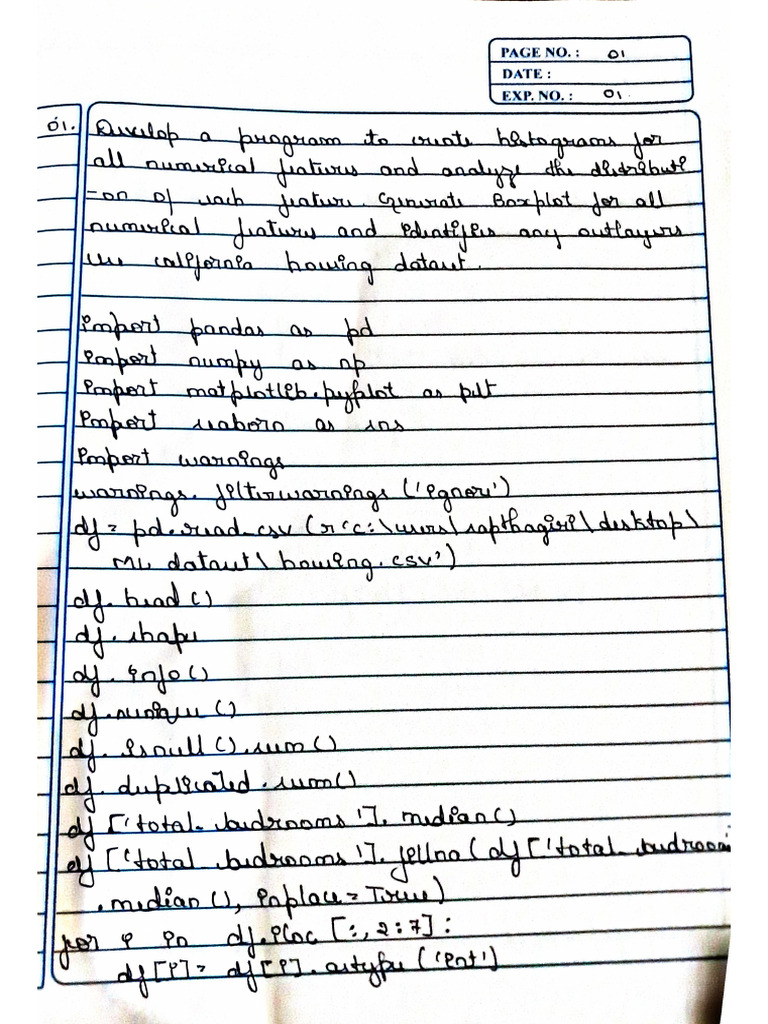 PAGE NO. : 01
DATE :
EXP. NO. : 01
01. Develop a program to create histograms for
all numerical features and analyze the distributi
-on of each feature. Generate Boxplot for all
numerical features and identifies any outlayers
use california housing dataset.
import pandas as pd
import numpy as np
import matplotlib.pyplot as plt
import seaborn as sns
import warnings
warnings.filterwarnings ('ignore')
df = pd.read_csv (r'c:\users\sapthagiri\desktop\
ML dataset\housing.csv')
df.head ()
df.shape
df.info()
df.nunique ()
df.isnull().sum()
df.duplicated.sum()
df ['total_bedrooms'].median()
df ['total_bedrooms'].fillna(df['total_bedrooms
.median(), inplace=True)
for i in df.iloc [:, 2:7]:
df[i]= df[i].astype('int')